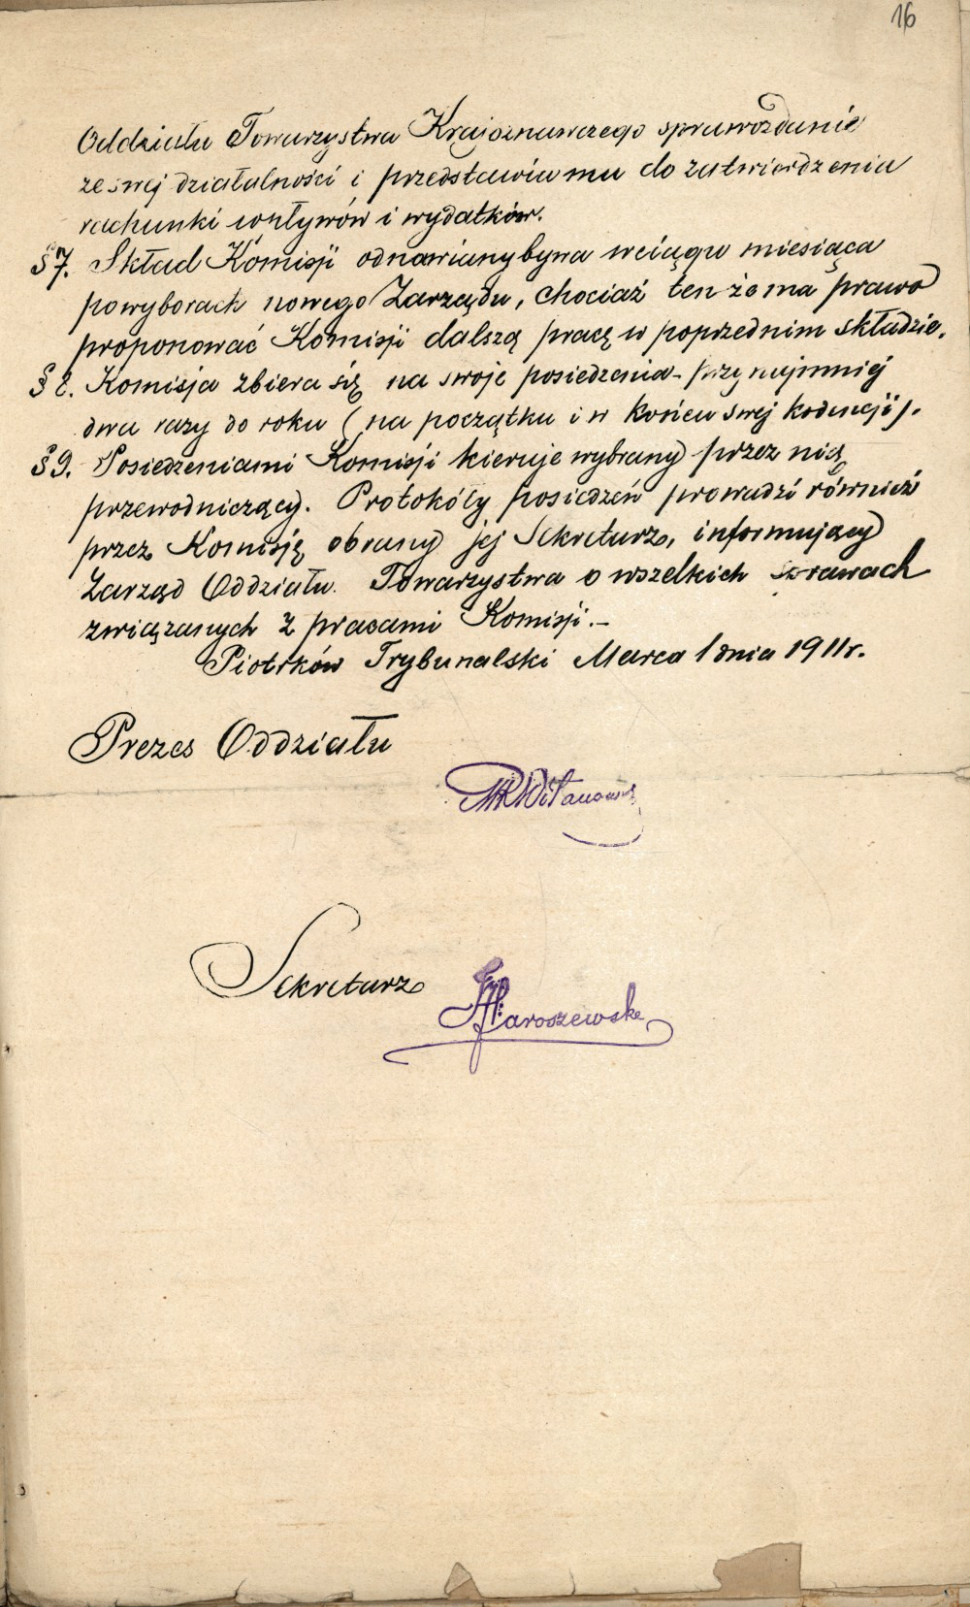 16
Oddziału Towarzystwa Krajoznawczego sprawozdanie
ze swej działalności i przedstawia mu do zatwierdzenia
rachunki wpływów i wydatków.
§ 7. Skład Komisji odnawiany bywa w ciągu miesiąca
po wyborach nowego Zarządu, chociaż ten że ma prawo
proponować Komisji dalszą pracę w poprzednim składzie.
§ 8. Komisja zbiera się na swoje posiedzenia - przynajmniej
dwa razy do roku (na początku i w końcu swej kadencji).
§ 9. Posiedzeniami Komisji kieruje wybrany przez nią
przewodniczący. Protokóły posiedzeń prowadzi również
przez Komisję obrany jej Sekretarz, informujący
Zarząd Oddziału Towarzystwa o wszelkich sprawach
związanych z pracami Komisji. -
Piotrków Trybunalski Marca 1 dnia 1911 r.
Prezes Oddziału
MRWitanowski
Sekretarz